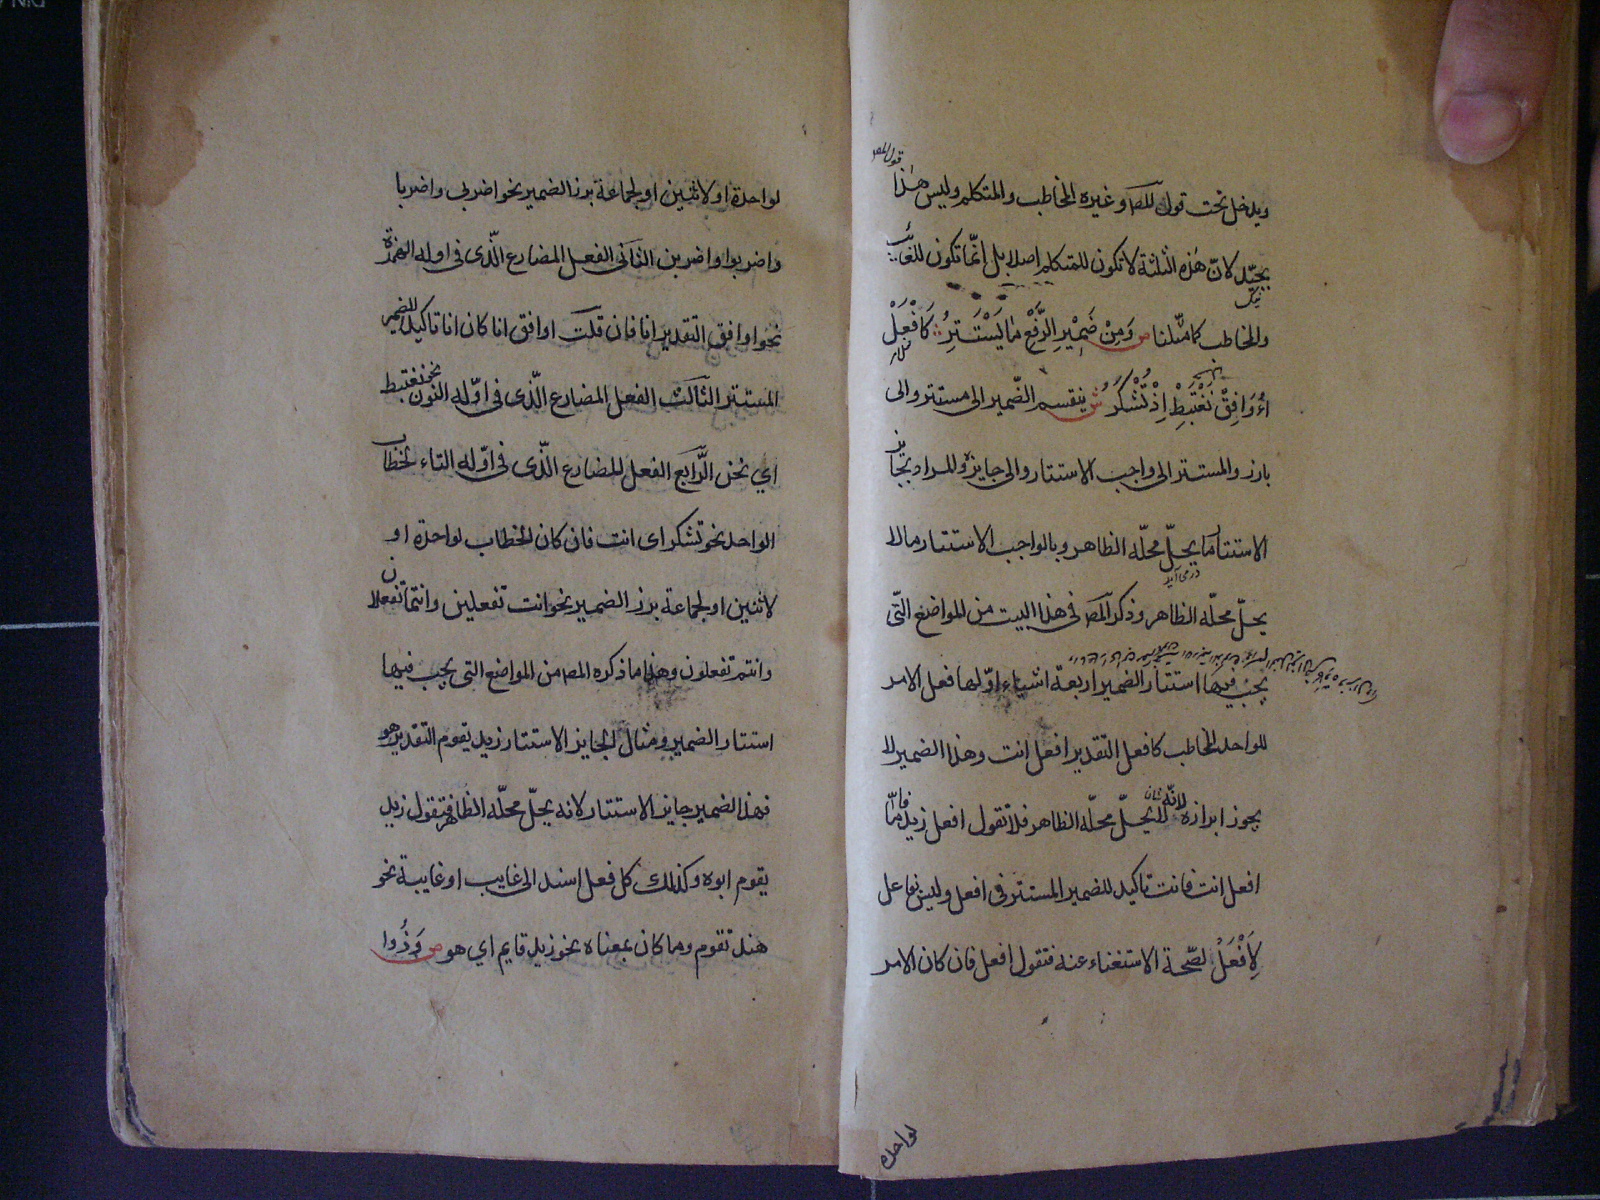 قول المص
ويدخل تحت قول المص وغيره المخاطب والمتكلم وليس هذا
بجيّد لانّ هذه الثلثة لا تكون للمتكلم اصلا بل انّما تكون للغائب
والمخاطب كما مثّلنا ص وَمِنْ ضَمِيْرِ الرَّفْعِ مٰا يَسْتَتِرُ كَافْعَلْ
اُوَافِقْ نَغْتَبِطْ اِذْ تُشْكَرُ ش ينقسم الضّمير الى مستتر والى
بارز والمستتر الى واجب الاستتار والى جايزه والمراد بجايز
الاستتار ما يحلّ محلّه الظاهر وبالواجب الاستتار ما لا
در می آید
يحلّ محلّه الظاهر وذكر المص فى هذا البيت من المواضع الّتى
يجب فيها استتار الضمير اربعة اشياء اوّلها فعل الامر
للواحد المخاطب كافعل التقدير افعل انت وهذا الضمير لا
يجوز ابرازه لانّه لا يحلّ محلّه الظاهر فلا تقول افعل زيد فامّا
افعل انت فانت تاكيد للضمير المستتر فى افعل وليس بفاعل
لِاَفْعَلْ لصّحة الاستغناء عنه فتقول افعل فان كان الامر
لواحدة
لواحدة او لاثنين او لجماعة برز الضمير نحو اضربى واضربا
واضربوا واضربن الثانى الفعل المضارع الّذى فى اوله الهمزة
نحو اوافق التقدير انا فان قلت اوافق انا كان انا تاكيد للضمير
المستتر الثالث الفعل المضارع الّذى فى اوّله النون نحو نغتبط
اي نحن الرّابع الفعل المضارع الّذى فى اوّله التاء لخطاب
الواحد نحو تشكر اى انت فان كان الخطاب لواحدة او
لاثنين او لجماعة برز الضمير نحو انت تفعلين وانتما تفعلان
وانتم تفعلون وهذا ما ذكره المص من المواضع التى يجب فيها
استتار الضمير ومثال الجايز الاستتار زيد يقوم التقدير هو
فهذا الضمير جايز الاستتار لانه يحلّ محلّه الظاهر فتقول زيد
يقوم ابوه وكذلك كل فعل اسند الى غايب او غايبة نحو
هند تقوم وما كان بمعناه نحو زيد قايم اي هو ص وَذُوا